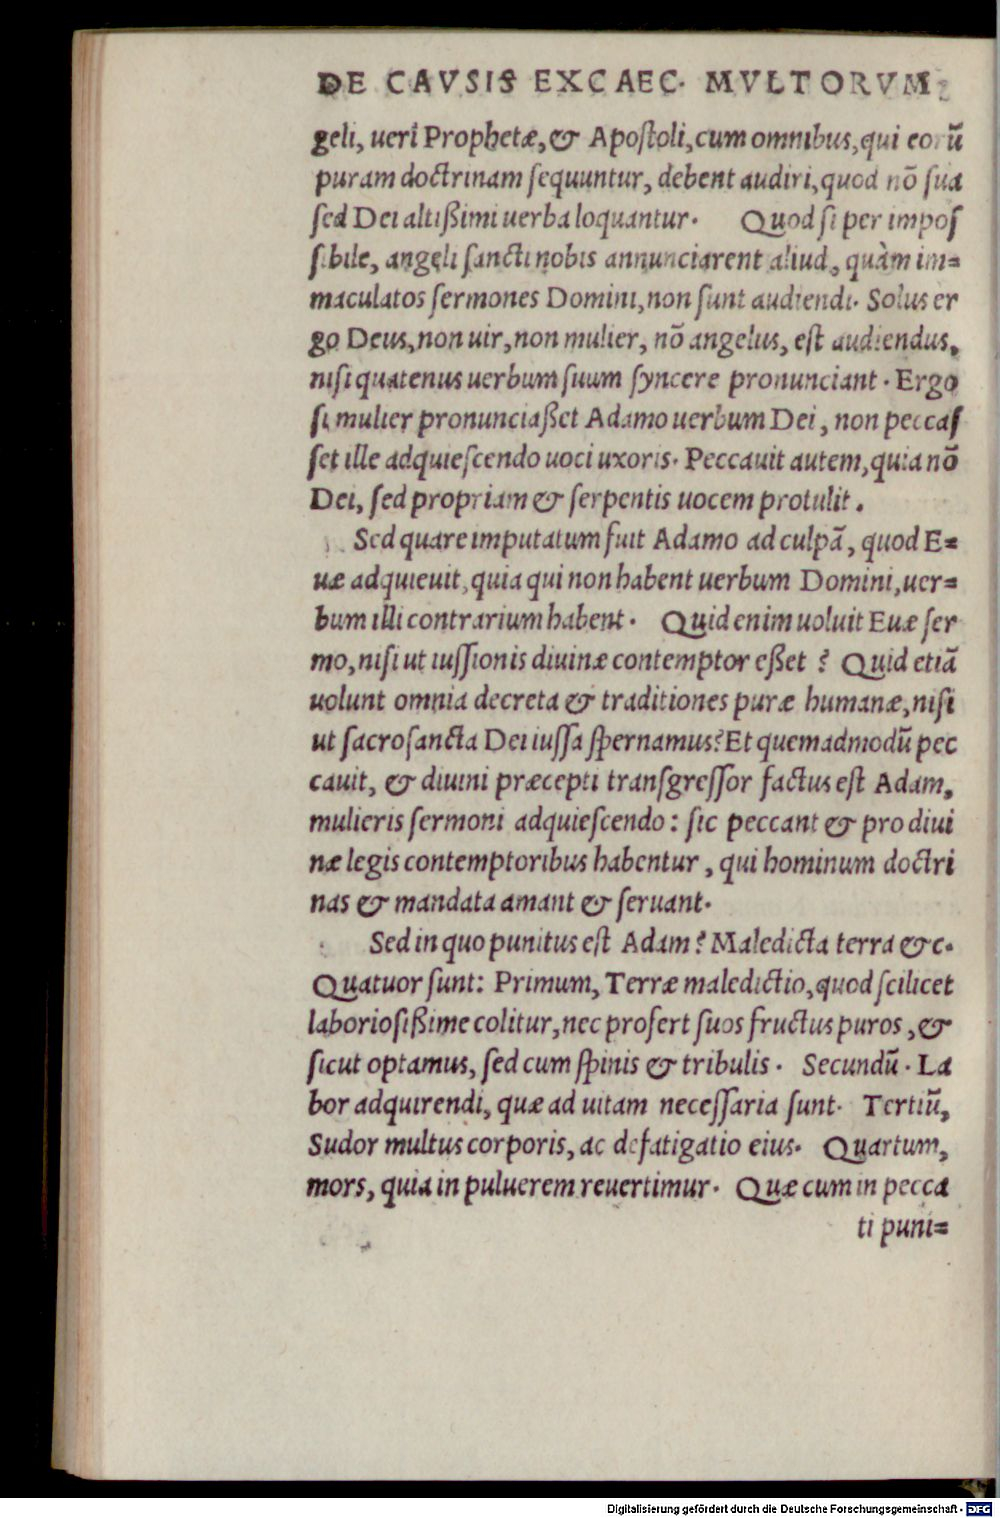 DE CAVSIS EXCAEC. MVLTORVM
geli, ueri Prophetæ, & Apoſtoli, cum omnibus, qui eorũ
puram doctrinam ſequuntur, debent audiri, quod nõ ſua
ſed Dei altißimi uerba loquantur. Quod ſi per impoſ
ſibile, angeli ſancti nobis annunciarent aliud, quàm im=
maculatos ſermones Domini, non ſunt audiendi. Solus er
go Deus, non uir, non mulier, nõ angelus, eſt audiendus,
niſi quatenus uerbum ſuum ſyncere pronunciant. Ergo
ſi mulier pronunciaßet Adamo uerbum Dei, non peccaſ
ſet ille adquieſcendo uoci uxoris. Peccauit autem, quia nõ
Dei, ſed propriam & ſerpentis uocem protulit.
Sed quare imputatum fuit Adamo ad culpã, quod E=
uæ adquieuit, quia qui non habent uerbum Domini, uer=
bum illi contrarium habent. Quid enim uoluit Euæ ſer
mo, niſi ut iuſſionis diuinæ contemptor eßet? Quid etiã
uolunt omnia decreta & traditiones puræ humanæ, niſi
ut ſacroſancta Dei iuſſa ſpernamus? Et quemadmodũ pec
cauit, & diuini præcepti tranſgreſſor factus eſt Adam,
mulieris ſermoni adquieſcendo: ſic peccant & pro diui
næ legis contemptoribus habentur, qui hominum doctri
nas & mandata amant & ſeruant.
Sed in quo punitus eſt Adam? Maledicta terra &c.
Quatuor ſunt: Primum, Terræ maledictio, quod ſcilicet
laborioſißime colitur, nec profert ſuos fructus puros, &
ſicut optamus, ſed cum ſpinis & tribulis. Secundũ. La
bor adquirendi, quæ ad uitam neceſſaria ſunt. Tertiũ,
Sudor multus corporis, ac defatigatio eius. Quartum,
mors, quia in puluerem reuertimur. Quæ cum in pecca
ti puni=
Digitalisierung gefördert durch die Deutsche Forschungsgemeinschaft - DFG